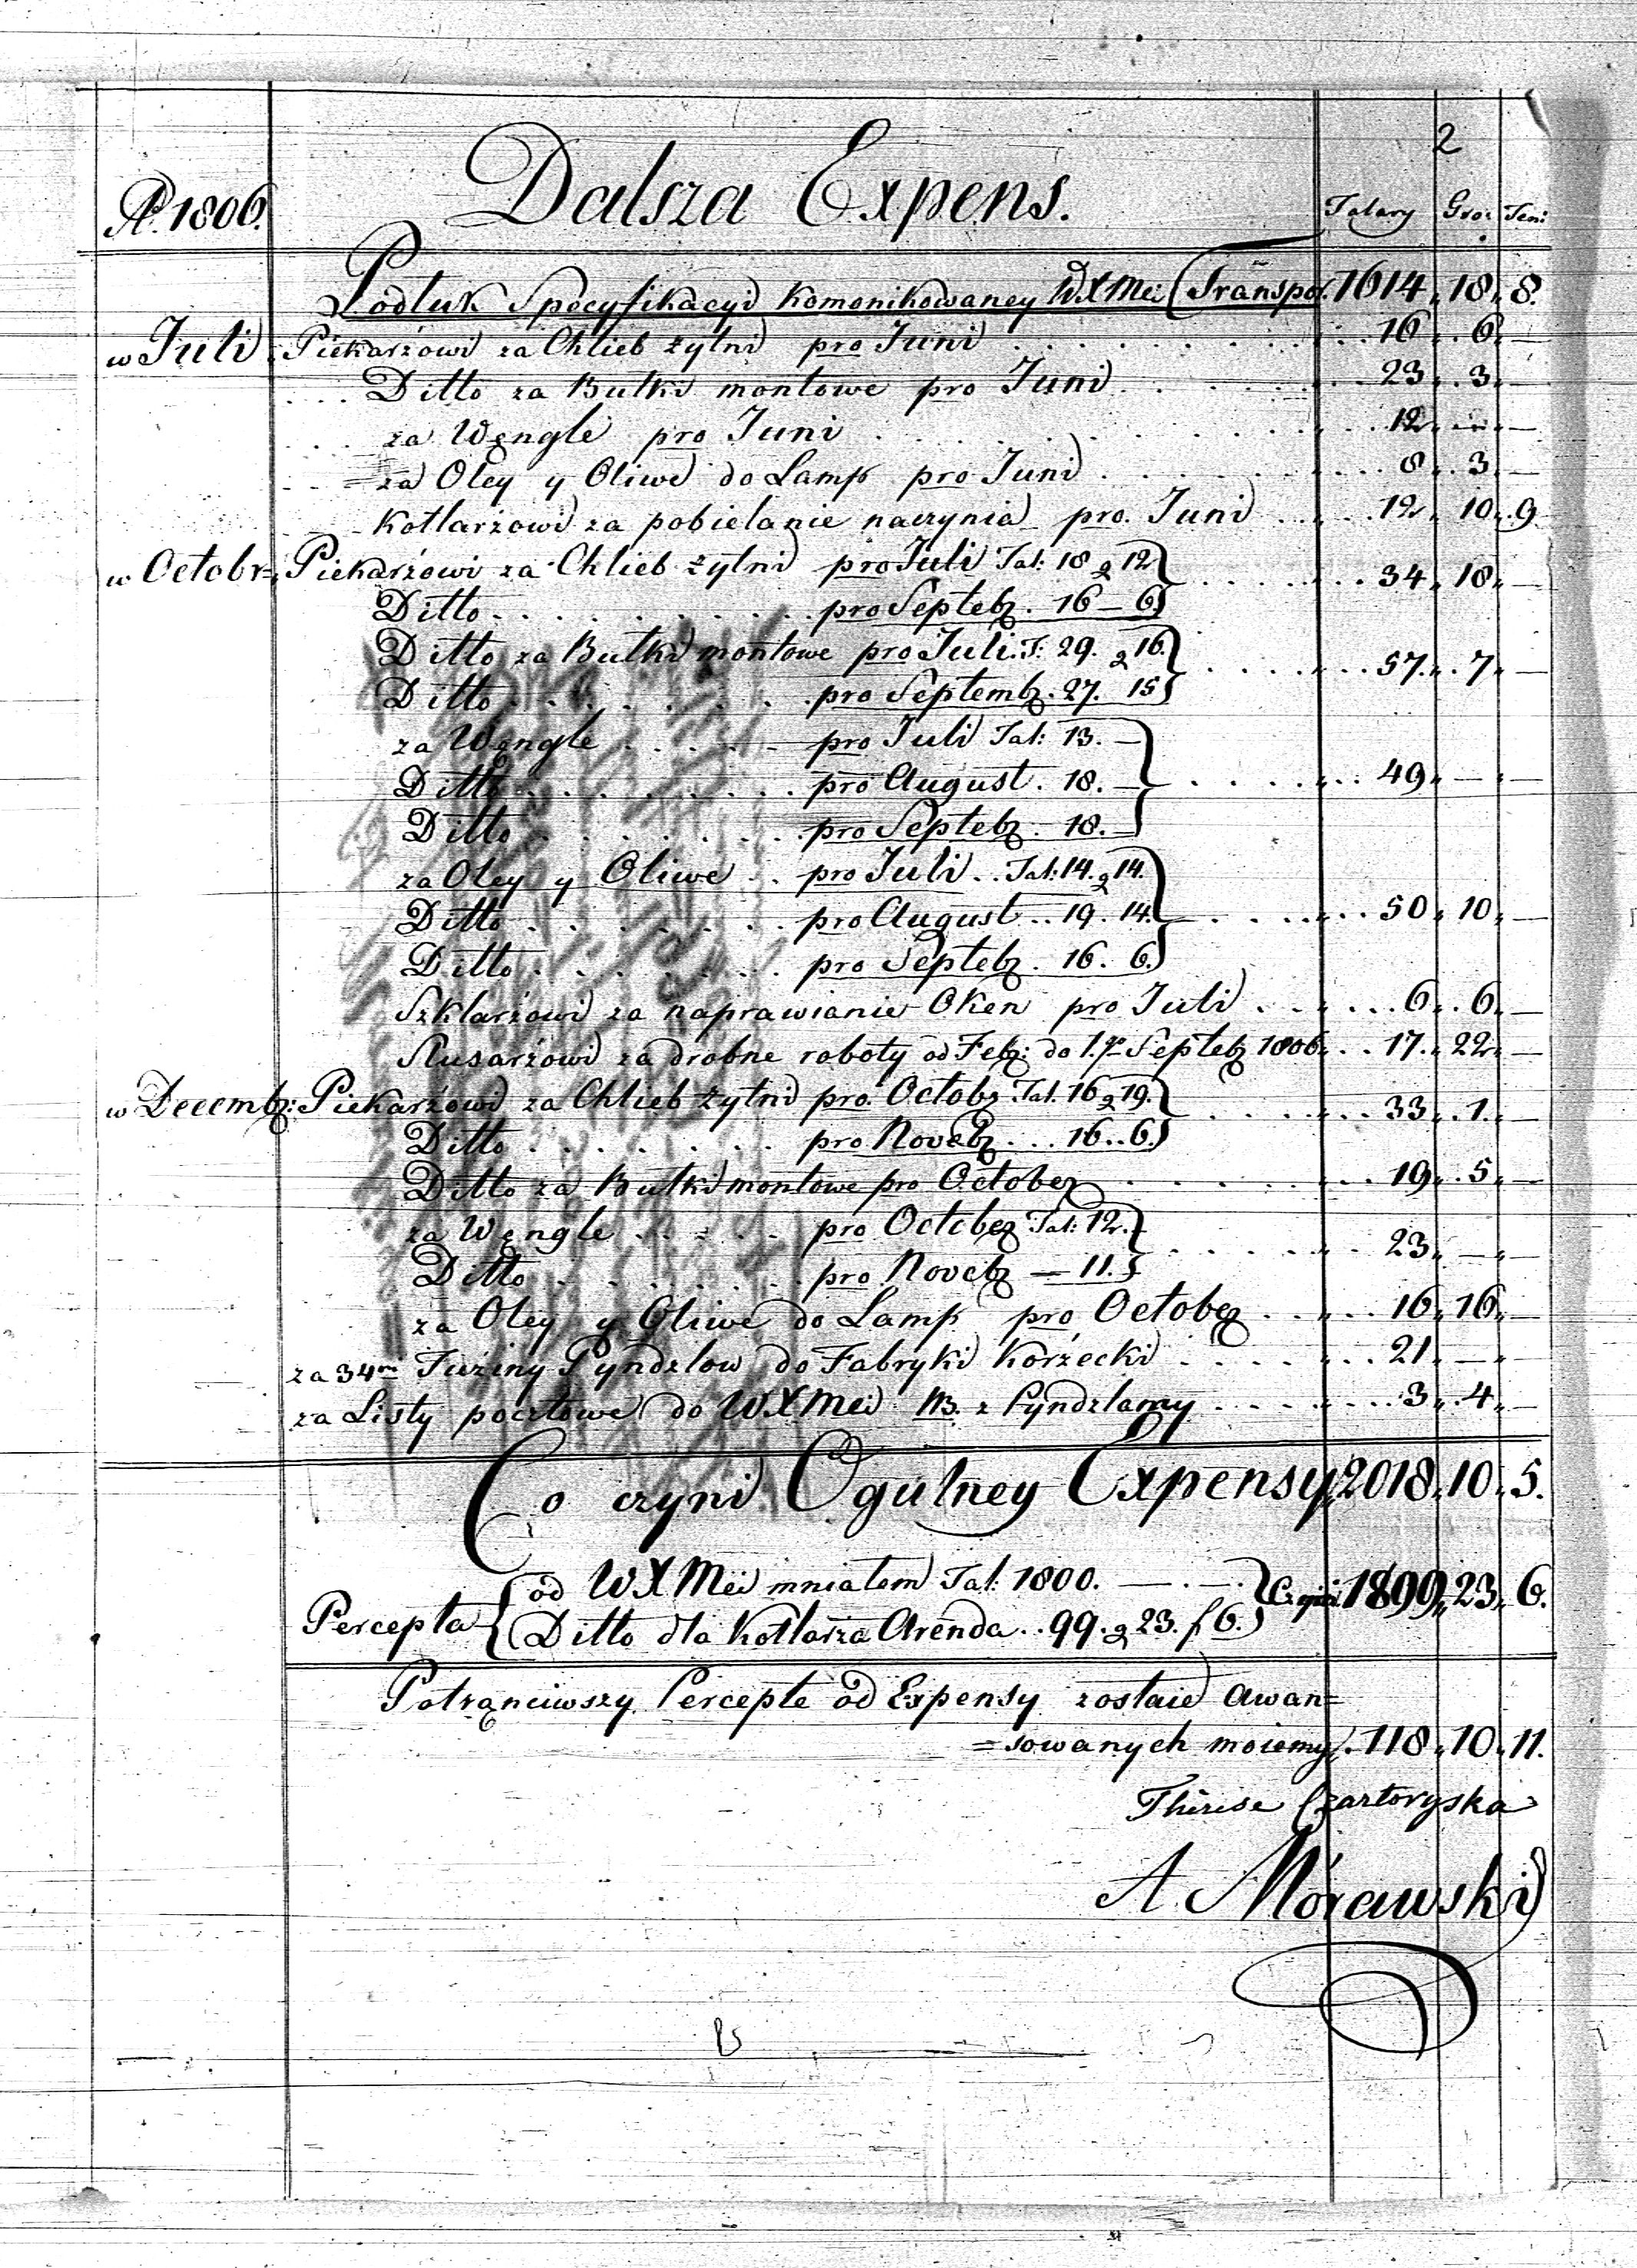 2
Ao. 1806. Dalsza Expens. Talary Gro: Feni:
Podluk Specyfikacyi Komonikowaney W.X Mei Transpor. 1614 „ 18 „ 8.
w Juli Piekarzowi za Chlieb żytni pro Juni . . . 16 „ 6 „ —
Ditto za Bułki montowe pro Juni . . . 23 „ 3 „ —
za Węngle pro Juni . . . 12 „ — „ —
za Oley y Oliwe do Lamp pro Juni . . . 8 „ 3 „ —
Kotlarzowi za pobielanie naczynia pro Juni . . . 12 „ 10 „ 9
w Octobr: Piekarzowi za Chlieb żytni pro Juli Tal: 18 g 12 } . . . 34 „ 18 „ —
Ditto . . . pro Septebr. 16 — 6 }
Ditto za Bułki montowe pro Juli. T: 29. g 16. } . . . 57 „ 7 „ —
Ditto . . . pro Septembr. 27. 15 }
za Węngle . . . pro Juli Tal: 13. — }
Ditto . . . pro August. 18. — } . . . 49 „ — „ —
Ditto . . . pro Septebr. 18. — }
za Oley y Oliwe . . pro Juli . . Tal: 14. g 14. }
Ditto . . . pro August . . 19. 14. } . . . 50 „ 10 „ —
Ditto . . . pro Septebr. 16. 6. }
Szklarzowi za naprawianie Oken pro Juli . . . 6 „ 6 „ —
Slusarzowi za drobne roboty od Febr: do 1. Septebr 1806 . . 17 „ 22 „ —
w Decembr: Piekarzowi za Chlieb żytni pro Octobr Tal. 16 g 19. } . . . 33 „ 1 „ —
Ditto . . . pro Novebr . . . 16 . . 6. }
Ditto za Bułki montowe pro October . . . 19 „ 5 „ —
za Węngle . . . pro October Tal: 12. } . . . 23 „ — „ —
Ditto . . . pro Novebr — 11. }
za Oley y Oliwe do Lamp pro October . . . 16 „ 16 „ —
za 34ry Tuziny Pyndzlow do Fabryki Korzecki . . . 21 „ — „ —
za Listy pocztowe do W X Mei NB. z Pyndzlamy . . . 3 „ 4 „ —
Co czyni Ogulney Expensy „ 2018 „ 10 „ 5.
Percepta { od W X Mei mniałem Tal: 1800. — . — . } Czyni 1899 „ 23 „ 6.
Ditto dla Kotlarza Arenda . . 99. g 23. f 6. }
Potrąnciwszy Percepte od Expensy zostaie Awan=
=sowanych moiemy . 118 „ 10 „ 11.
Thérése Czartoryska
A. Morawski